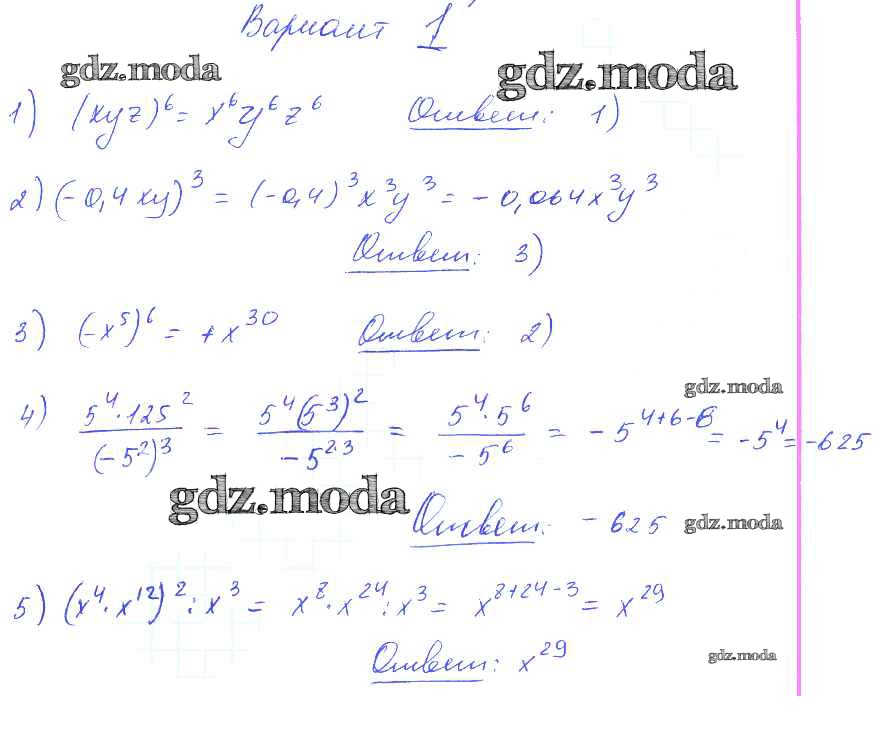 Вариант 1
gdz.moda gdz.moda
1) (xyz)⁶ = x⁶y⁶z⁶ Ответ: 1)
2) (-0,4xy)³ = (-0,4)³x³y³ = -0,064x³y³
Ответ: 3)
3) (-x⁵)⁶ = +x³⁰ Ответ: 2)
gdz.moda
4) (5⁴·125²)/((-5²)³) = (5⁴(5³)²)/(-5²·³) = (5⁴·5⁶)/(-5⁶) = -5⁴⁺⁶⁻⁶ = -5⁴ = -625
gdz.moda
Ответ: -625 gdz.moda
5) (x⁴·x¹²)² : x³ = x⁸·x²⁴ : x³ = x⁸⁺²⁴⁻³ = x²⁹
Ответ: x²⁹ gdz.moda